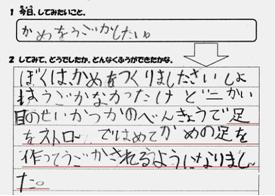 1 今日、してみたいこと。
かめをうごかしたい。
2 してみて、どうでしたか。どんなくふうができたかな。
ぼくはかめをつくりましたさいしょ
はうごかなかったけど二かい
目のせいかつかのべんきょうで足
をストローではめてかめの足を
作ってうごかされるようになりまし
た。